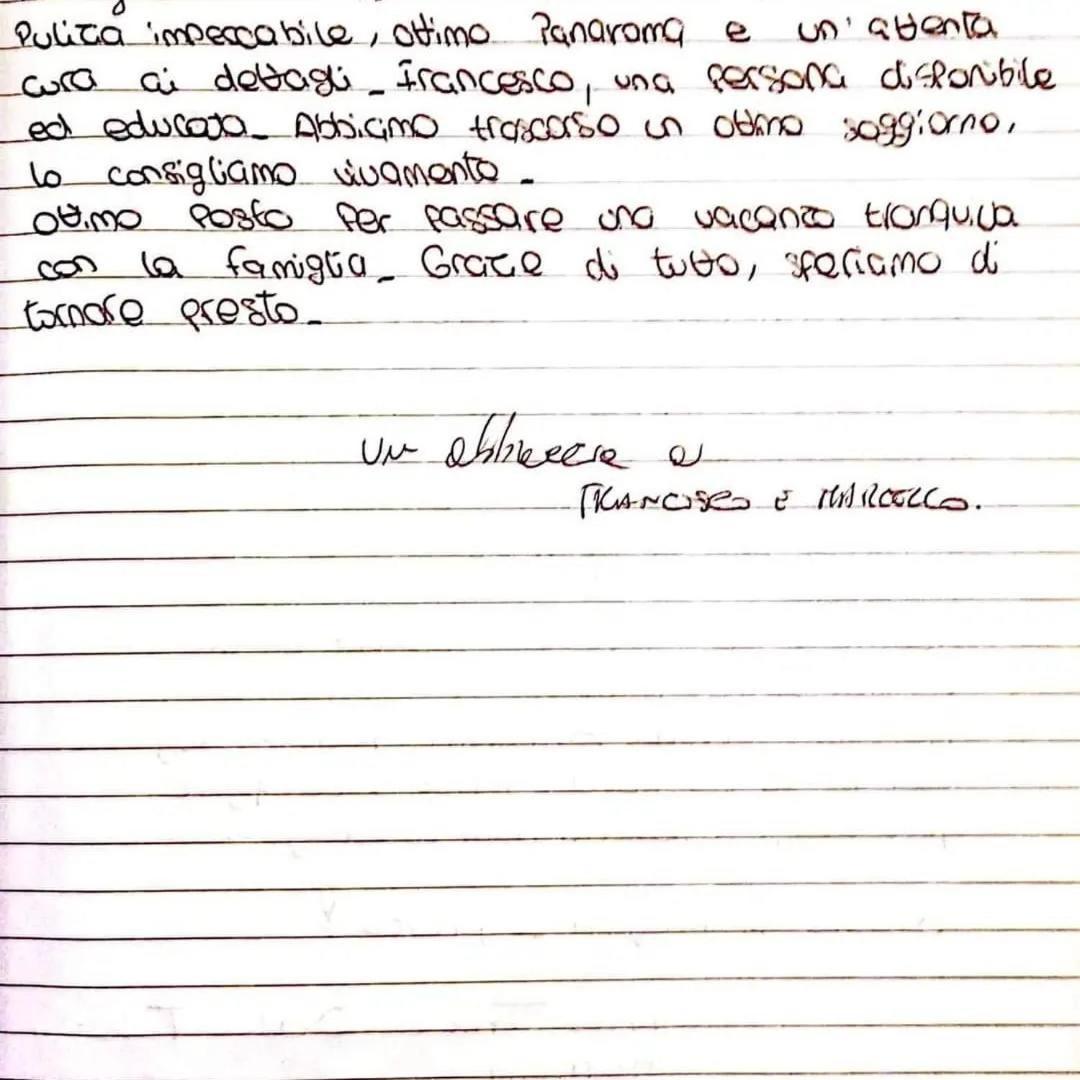 Pulizia impeccabile, ottimo Panaroma e un'attenta
cura ai dettagli_ Francesco, una persona disponibile
ed educata_ Abbiamo trascorso un ottimo soggiorno,
lo consigliamo vivamente_
ottimo Posto Per passare una vacanza tranquilla
con la famiglia_ Grazie di tutto, speriamo di
tornare presto_
Un abbraccio a
FRANCESCO E MARCELLO.